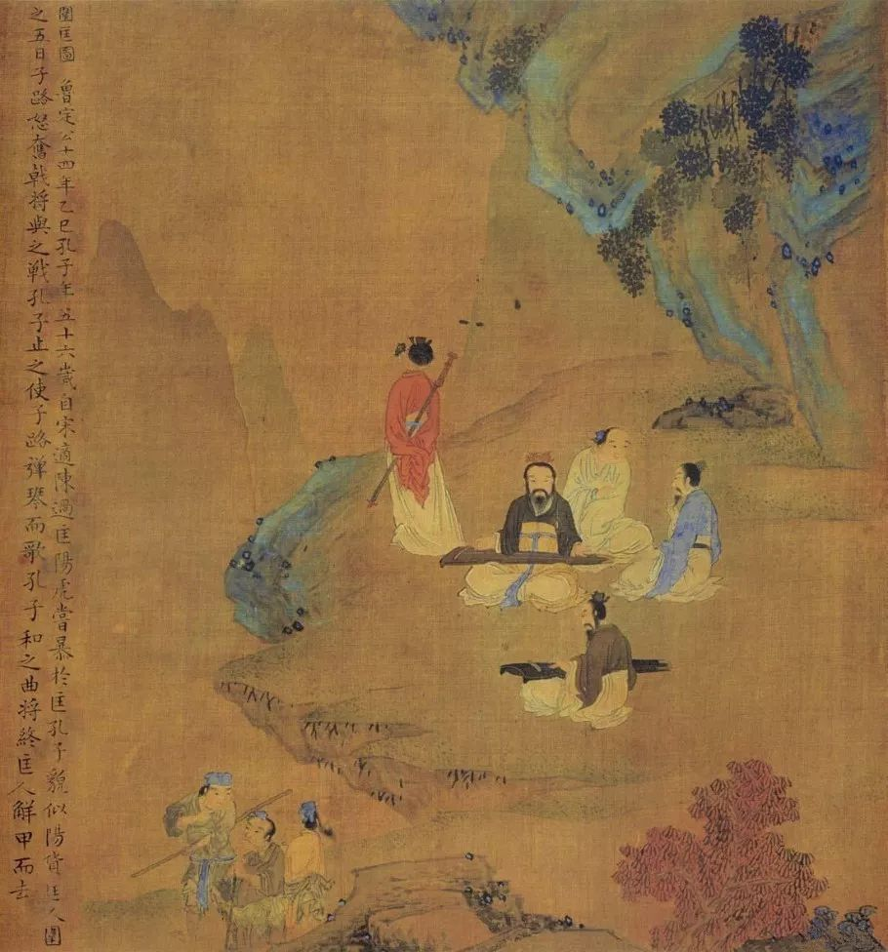 圍匡圖 魯定公十四年乙巳孔子年五十六歲自宋適陳過匡陽虎嘗暴於匡孔子貌似陽貨匡人圍
之五日子路怒奮戟將與之戰孔子止之使子路彈琴而歌孔子和之曲將終匡人解甲而去